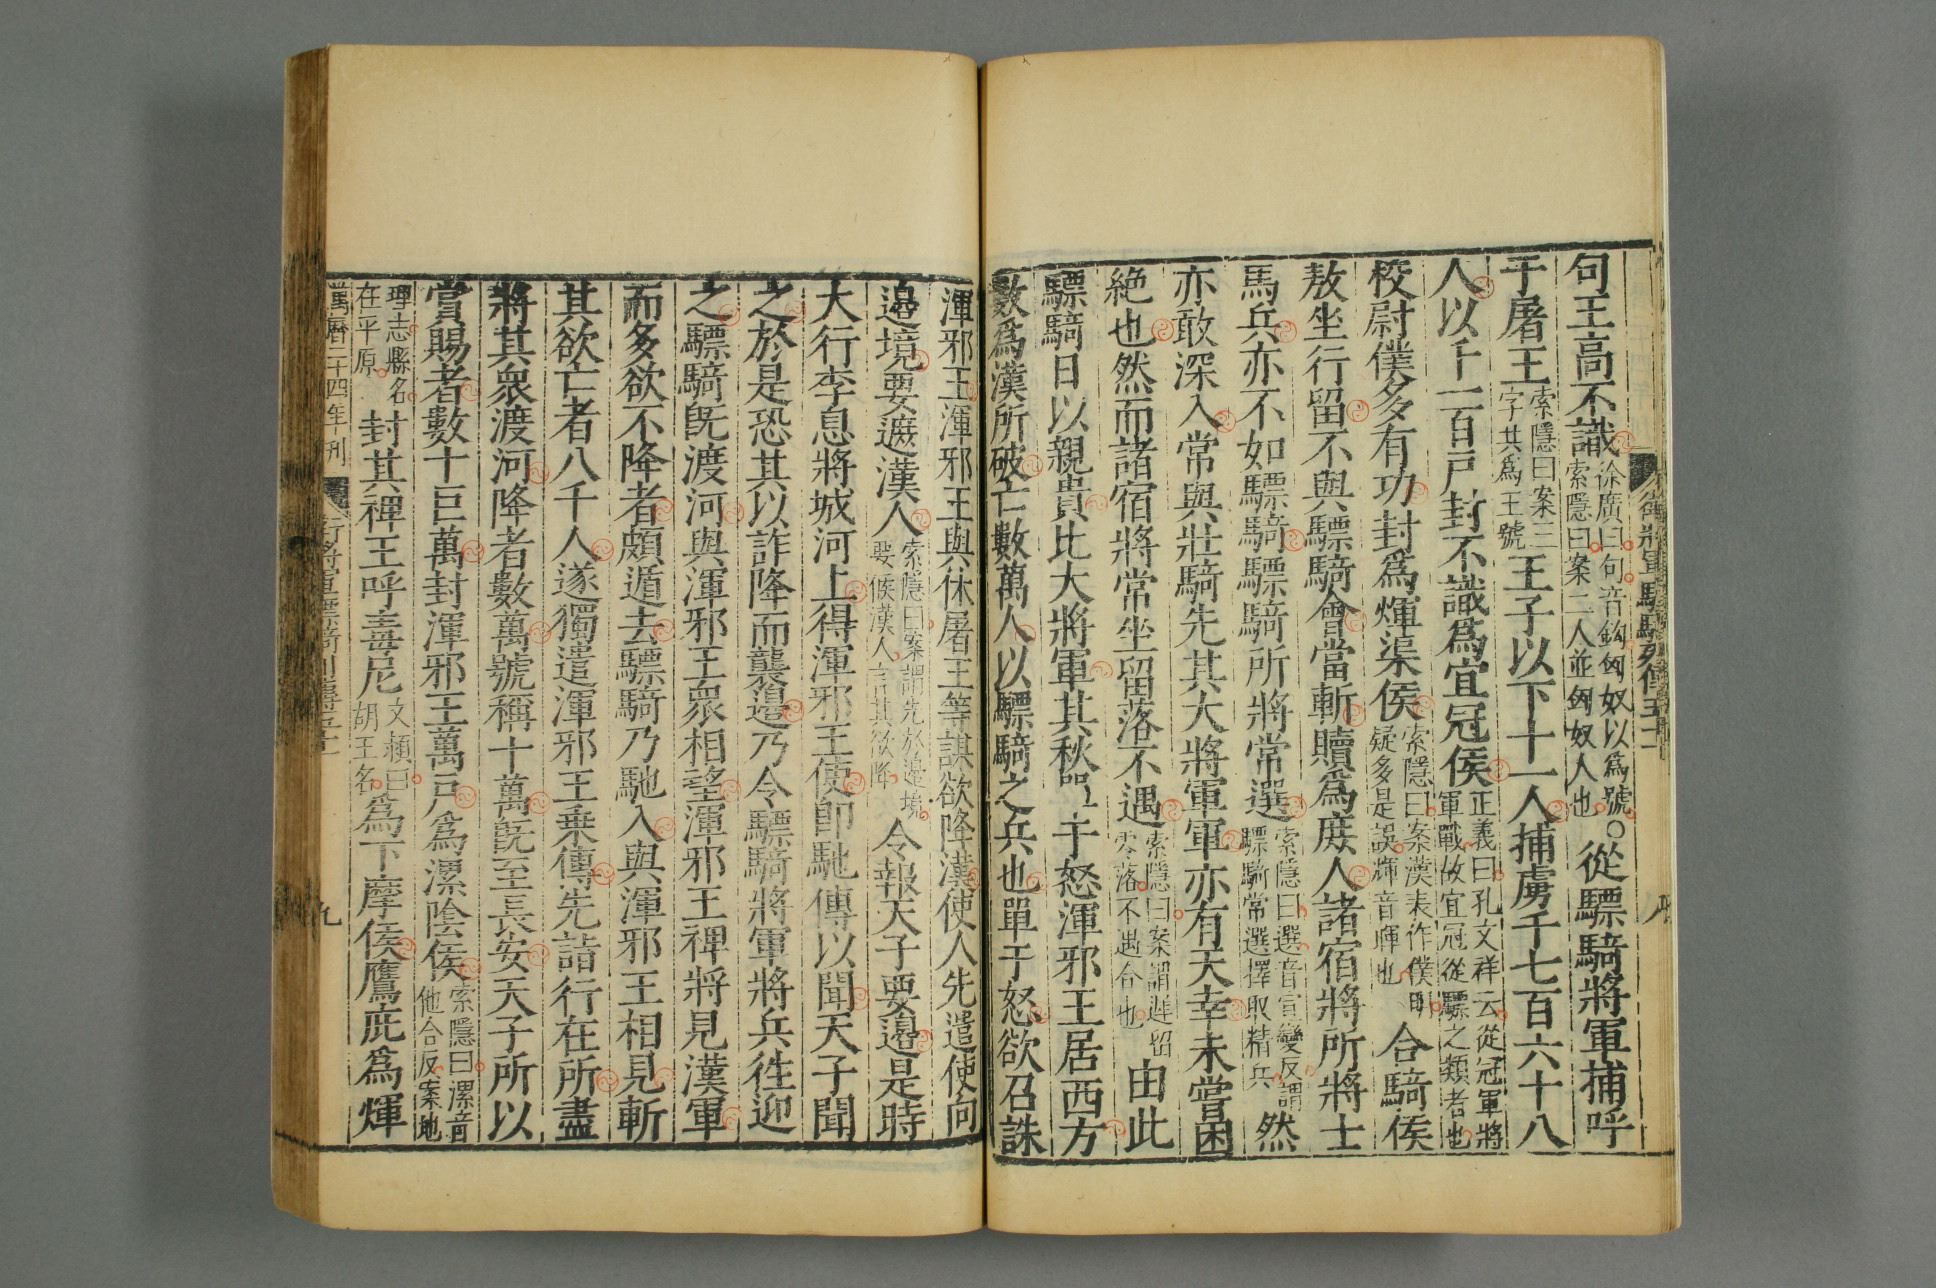 衛將軍驃騎列傳五十一
八
句王高不識徐廣曰句音鉤匈奴以為號○索隱曰案二人並匈奴人也從驃騎將軍捕呼
于屠王索隱曰案三字其為王號王子以下十一人捕虜千七百六十八
人以千一百戶封不識為宜冠侯正義曰孔文祥云從冠軍將軍戰故宜冠從驃之類者也
校尉僕多有功封為煇渠侯索隱曰案漢表作僕朋疑多是誤煇音暉也合騎侯
敖坐行留不與驃騎會當斬贖為庶人諸宿將所將士
馬兵亦不如驃騎驃騎所將常選索隱曰選音宣變反謂驃騎常選擇取精兵然
亦敢深入常與壯騎先其大將軍軍亦有天幸未嘗困
絕也然而諸宿將常坐留落不遇索隱曰案謂遲留零落不遇合也由此
驃騎日以親貴比大將軍其秋單于怒渾邪王居西方
數為漢所破亡數萬人以驃騎之兵也單于怒欲召誅
渾邪王渾邪王與休屠王等謀欲降漢使人先遣使向
邊境要遮漢人索隱曰案謂先於邊境要候漢人言其欲降令報天子要邊是時
大行李息將城河上得渾邪王使即馳傳以聞天子聞
之於是恐其以詐降而襲邊乃令驃騎將軍將兵往迎
之驃騎既渡河與渾邪王眾相望渾邪王裨將見漢軍
而多欲不降者頗遁去驃騎乃馳入與渾邪王相見斬
其欲亡者八千人遂獨遣渾邪王乘傳先詣行在所盡
將其眾渡河降者數萬號稱十萬既至長安天子所以
賞賜者數十巨萬封渾邪王萬戶為漯陰侯索隱曰漯音他合反案地
理志縣名在平原封其裨王呼毒尼文穎曰胡王名為下摩侯鷹庇為煇
萬曆二十四年刊
九